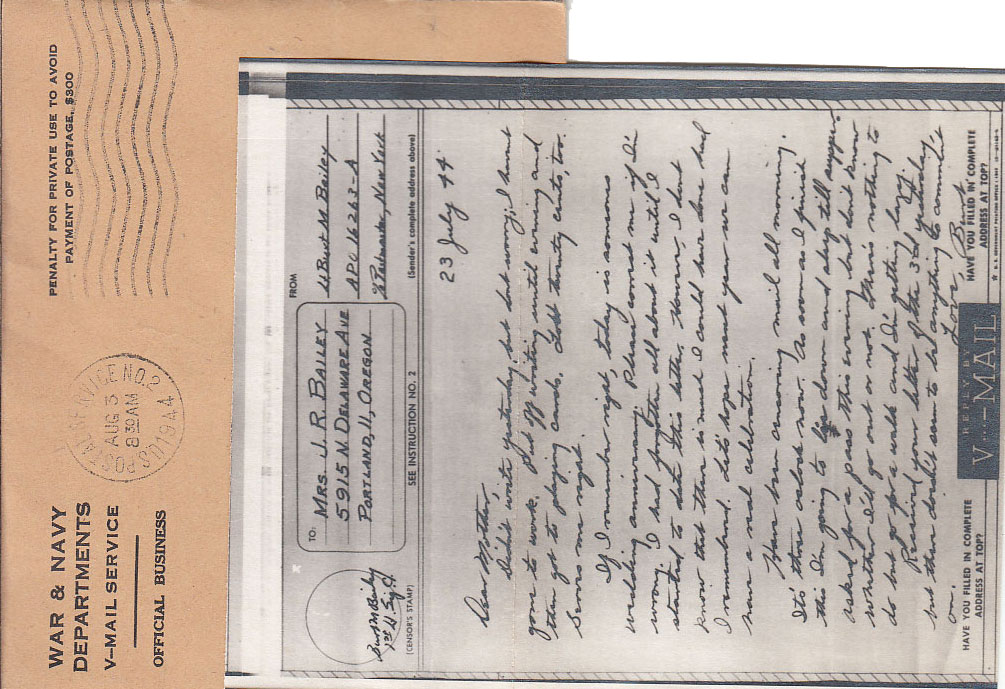 WAR & NAVY
DEPARTMENTS
V-MAIL SERVICE
OFFICIAL BUSINESS
U.S. POSTAL SERVICE NO. 2
AUG 3
8 30 AM
1944
PENALTY FOR PRIVATE USE TO AVOID
PAYMENT OF POSTAGE, $300
Burt M Bailey
1st Lt. Sig C.
(CENSOR'S STAMP)
TO:
MRS. J. R. BAILEY
5915 N. DELAWARE AVE
PORTLAND, 11, OREGON
SEE INSTRUCTION NO. 2
FROM
Lt Burt M Bailey
APO 16263-A
℅ Postmaster, New York
(Sender's complete address above)
23 July 44
Dear Mother,
Didn't write yesterday, but dont worry; I havent
gone to work. Put off writing until evening and
then got to playing cards. Lost thirty cents, too.
Serves me right.
If I remember right, today is someones
wedding anniversary. Please correct me if I'm
wrong. I had forgotten all about it until I
started to date this letter. However, I dont
know that there is much I could have done had
I remembered. Lets hope next year we can
have a real celebration.
Have been censoring mail all morning.
It's three oclock now. As soon as I finish
this I'm going to lie down and sleep till supper.
Asked for a pass this evening but don't know
whether I'll go out or not. There's nothing to
do but go for a walk and I'm getting lazy.
Received your letter of the 3rd yesterday
but there doesn't seem to be anything to comment
on. Love, Burt
HAVE YOU FILLED IN COMPLETE
ADDRESS AT TOP?
REPLY BY
V···-MAIL
HAVE YOU FILLED IN COMPLETE
ADDRESS AT TOP?